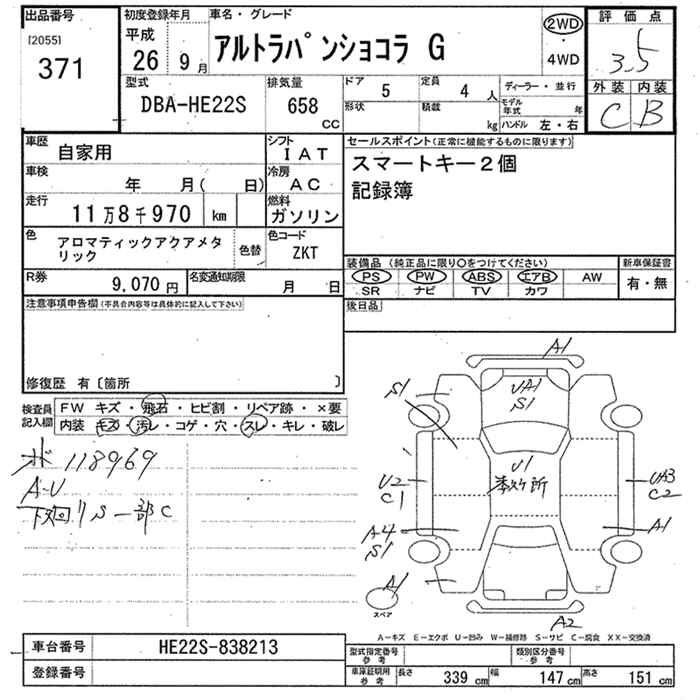 出品番号
[2055]
371
初度登録年月
平成
26 9月
車名・グレード
アルトラパンショコラ G
2WD
・
4WD
評価点
3.5
外装 内装
C B
型式
DBA-HE22S
排気量
658
cc
ドア 5
形状
定員 4 人
積載 kg
ディーラー・並行
モデル年式 年
ハンドル 左・右
車歴 自家用
車検 年 月( 日)
走行 11万8千970 km
シフト IAT
冷房 AC
燃料 ガソリン
色 アロマティックアクアメタリック
色替
色コード ZKT
R券 9,070円
名変通知期限 月 日
セールスポイント(正常に機能するものに限ります)
スマートキー2個
記録簿
装備品 (純正品に限り○をつけてください)
PS PW ABS エアB AW
SR ナビ TV カワ
新車保証書
有・無
後日品
注意事項申告欄(不具合内容等は具体的に記入して下さい)
修復歴 有〔箇所 〕
検査員
記入欄
FW キズ・飛石・ヒビ割・リペア跡・×要
内装 キズ・汚レ・コゲ・穴・スレ・キレ・破レ
118969
A-U
下廻り S 一部C
A1
S1
UA1
S1
U1
U2
C1
UA3
C2
A4
S1
A1
A1
A2
スペア
A-キズ E-エクボ U-凹み W-補修跡 S-サビ C-腐食 XX-交換済
車台番号 HE22S-838213
登録番号
型式指定番号
参考
類別区分番号
参考
車庫証明用
参考
長さ 339 cm
幅 147 cm
高さ 151 cm